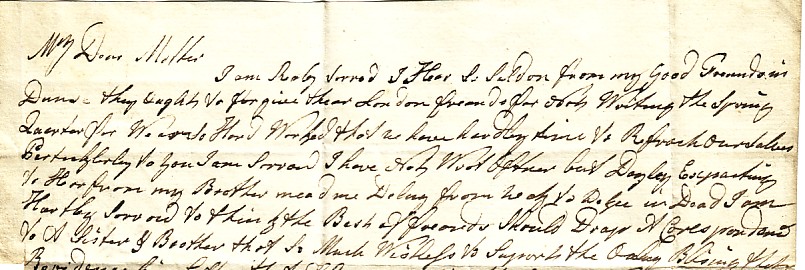 My Dear Mother
I am Realy sorrod I Hear So Seldom from my Good Freends in
Duns - they Ought to forgive thear London freends for Not Writing the Spring
Quarter for We are So Hard Worked that we have hardly time to Refrach Ourselves
Pertickerly to you I am Sorrod I have Not Wrot Oftner but Dayley Expacting
to Hear from my Brother mead me Delay from to in Dead I am
Hartley Sorrod to think the Best of freends Should Drap A Corespondance
to A Sister & Brother that So Much Wishess to Suport the Only Blesing that